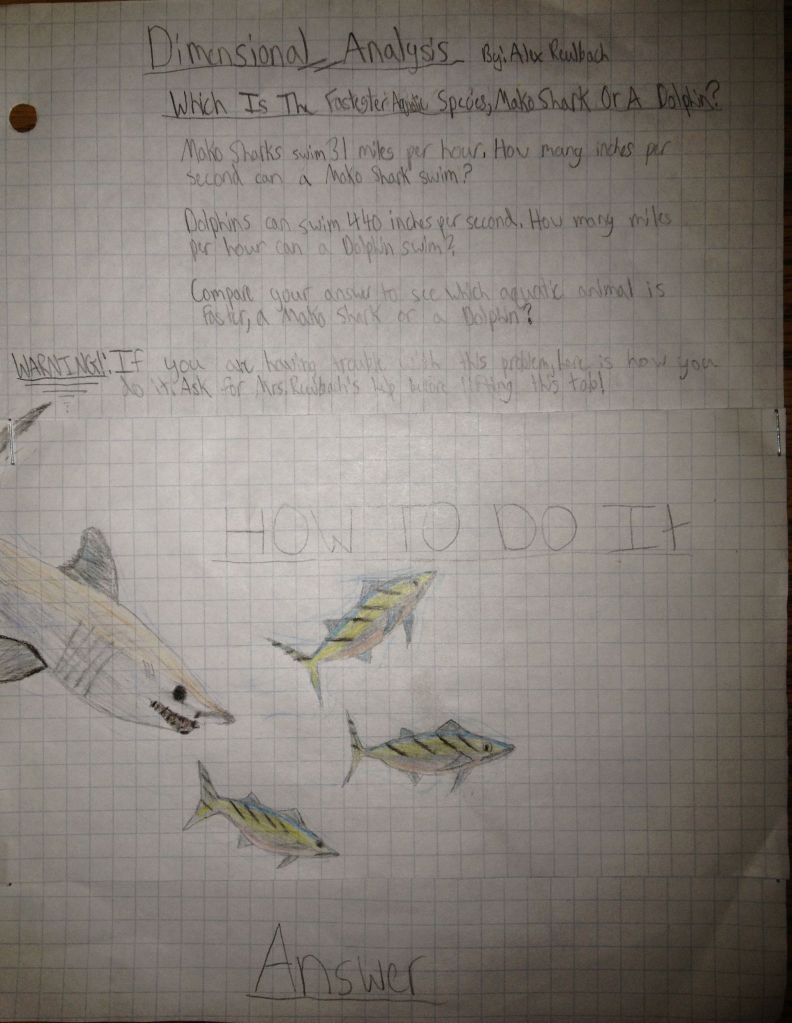 Dimensional Analysis By: Alex Reulbach
Which Is The Fastester Aquatic Species, Mako Shark Or A Dolphin?
Mako Sharks swim 31 miles per hour. How many inches per
second can a Mako Shark swim?
Dolphins can swim 440 inches per second. How many miles
per hour can a Dolphin swim?
Compare your answer to see which aquatic animal is
faster, a Mako Shark or a Dolphin?
WARNING!: If you are having trouble with this problem, here is how you
do it. Ask for Mrs. Reulbach's help before lifting this tab!
HOW TO DO It
Answer